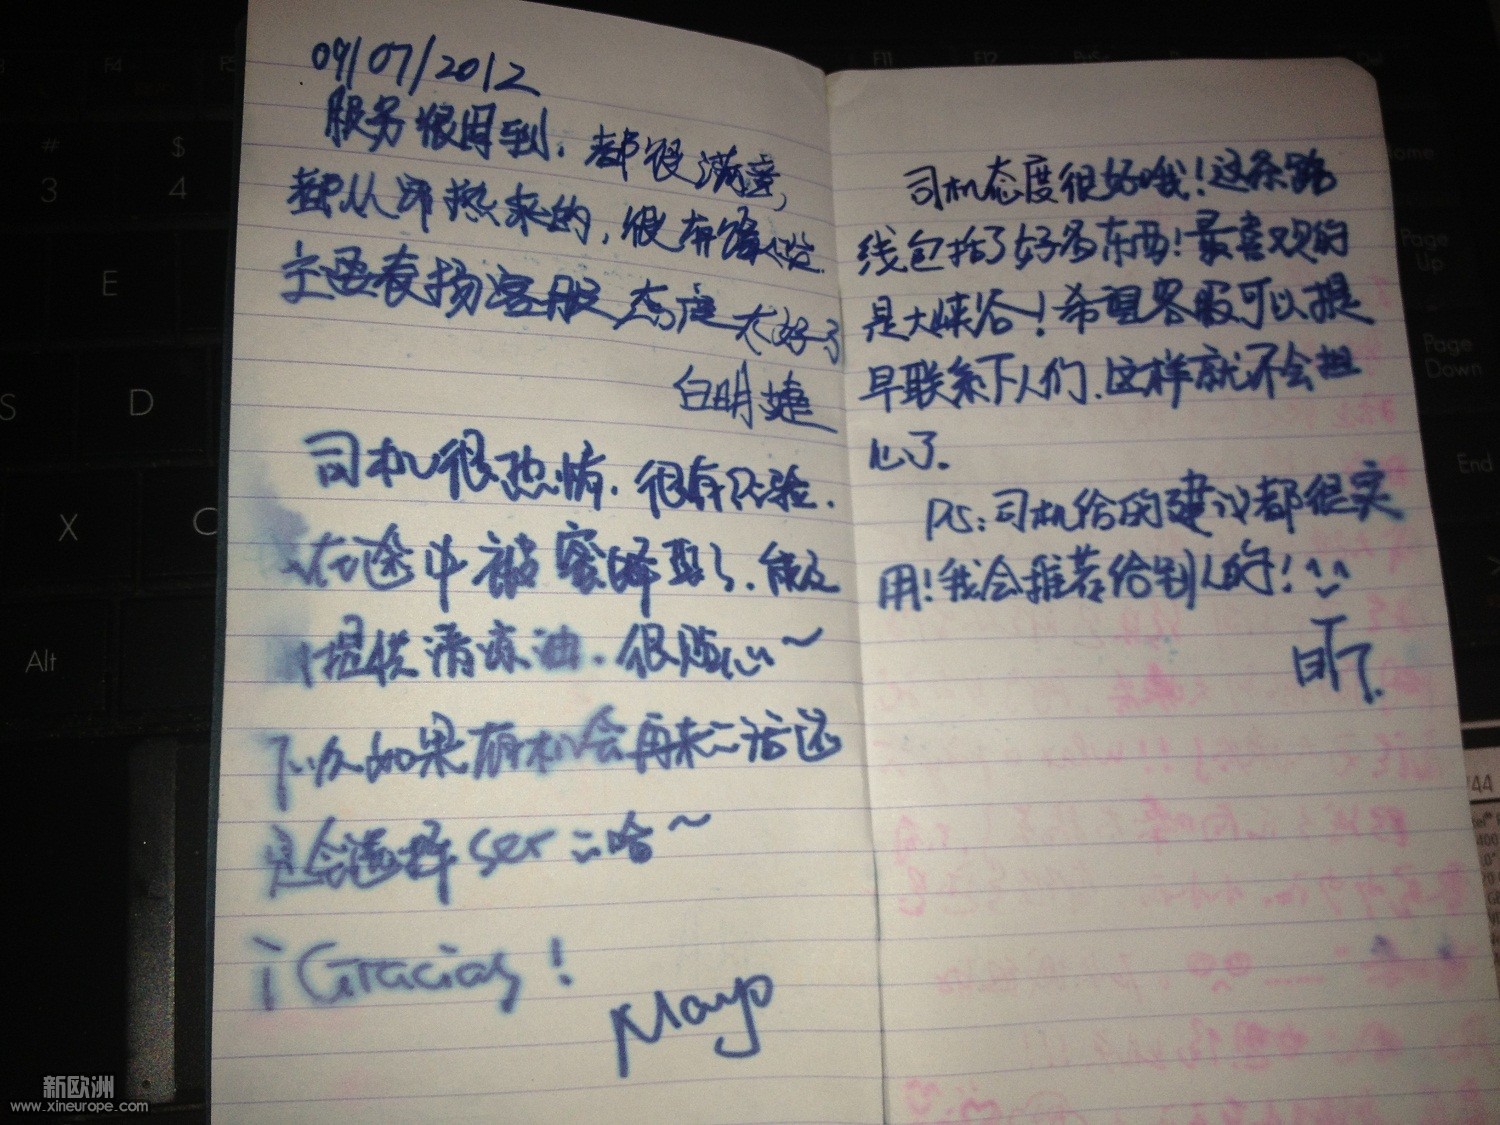 09/07/2012
服务很周到，都很满意，
都从 热来的，很有 
主要表扬客服态度太好了
白明婕
司机很热情．很有经验．
在途中被蜜蜂蛰了．能及
时提供清凉油．很贴心~
下次如果有机会再来二话还
定会选择 ser 二哈~
¡Gracias!
Mayo
司机态度很好哦！这条路
线包括了好多东西！最喜欢的
是大峡谷！希望客服可以提
早联系下人们．这样就不会担
心了．
PS：司机给的建议都很实
用！我会推荐给别人的！^_^
#
$
3
4
E
S
D
X
C
Alt
F4
F11
F12
Home
Page
Up
Page
Down
End
新欧洲
www.xineurope.com